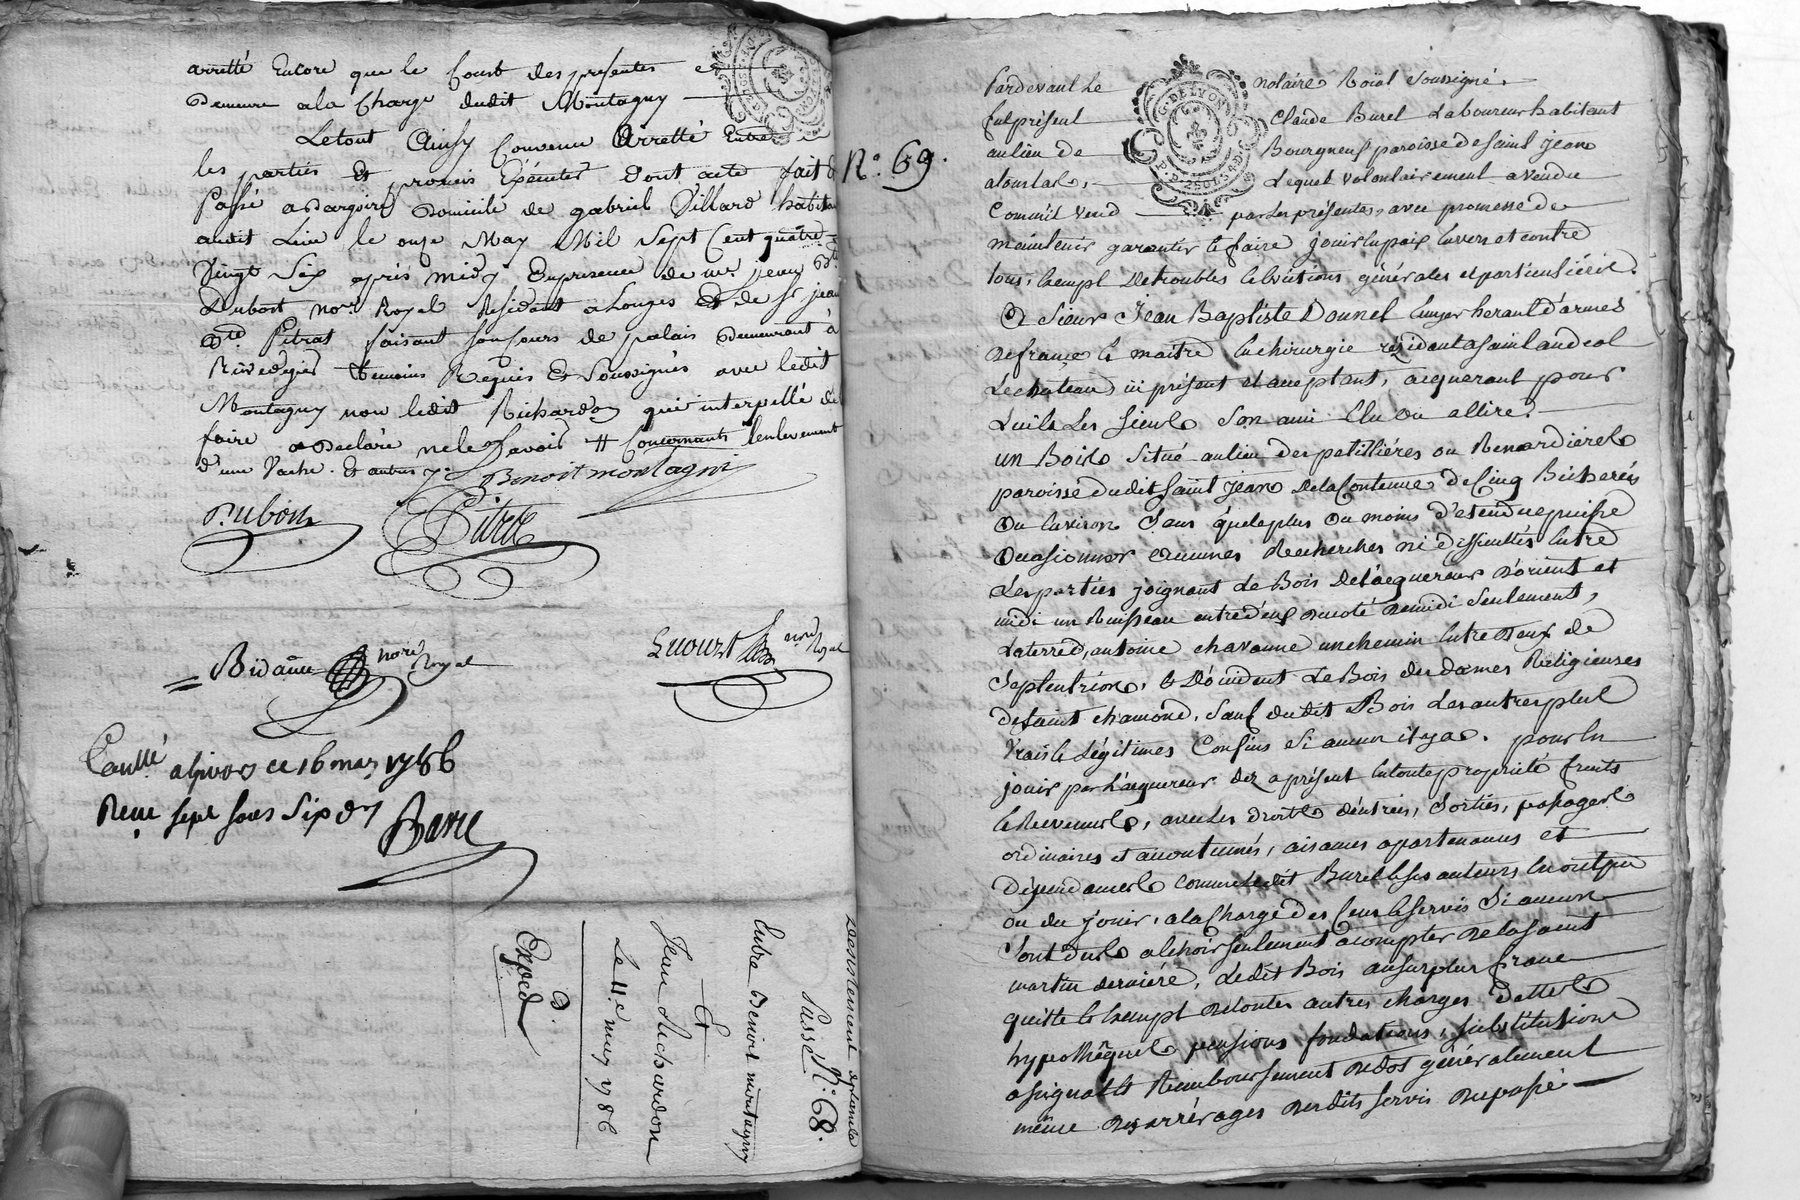 arretté Encore que le Cout des presentes
Demeure a la Charge dudit Montagny
Le tout Ainsy Convenu Arretté Entre
les parties Et promis Exécuter Dont acte fait &
Passé a dargoire Domicile de gabriel Villard habitan
audit Lieu le onze May Mil Sept Cent quatre
Vingt Six apris midy En presence de me. jean Bte
Dubost nore. Royal Residant a Longes Et de Sr jean
Bte Pitrat faisant son cours de palais Demeurant à
Rivedegier temoins Requis Et Soussignés avec ledit
Montagny non ledit Richardon qui interpellé de
faire a Declaré ne le Savoir # Concernants lenlevement
d'une Vache. Et autres
Benoit montagni
Dubost
Pitrat
Bidaud nore Royal
nore Royal
Conllé. a givors ce 16 may 1786
Reçu sept sous Six drs
Barre
Desistement de plainte
Passé N: 68.
Entre Benoit montagny
Et
Jean Richardon
Le 11.e may 1786
Expéd
G. DE LYON
N.o 69.
Pardevant Le notaire Roïal Soussigné.
fut présent Claude Burel Laboureur habitant
au lieu de Bourgneuf paroisse de Saint Jean
a touslas, Lequel volontairement a vendu
Comm'il vend par les présentes, avec promesse de
maintenir garantir & faire jouir en paix envers et contre
tous, Exempt De troubles & évictions générales et particuliéres.
A Sieur Jean Baptiste Dounel Ecuyer heraut d'armes
de france & maitre en chirurgie résidant a Saint andeol
Le chateau ici présent et acceptant, acquerant pour
Lui & Les Siens Son ami Elu ou a Elire.
un Bois Situé au lieu des petillières ou Renardiéres
paroisse dudit Saint Jean De la Contenue de Cinq Bicherées
Ou Environ Sans que le plus Ou moins d'etendue puisse
Occasionner aucunes Recherches ni difficultés Entre
Les parties joignant Le Bois De l'acquereur d'orient et
midi un Ruisseau entredeux du coté de midi Seulement,
La terre d'antoine chavanne un chemin Entre Deux de
Septentrion, & D'occident Le Bois des dames Religieuses
de Saint chamond, Sauf dudit Bois Les autres plus
Vrais & Légitimes Confins Si aucun il y a. pour En
jouir par L'acquereur dez a présent En toute propriété fruits
& Revenus, avec Les droits d'entrées, Sorties, passages
ordinaires et accoutumés, aisances apartenances et
Dépendances comme Ledit Burel & Ses auteurs En ont pu
ou du jouir, a la Charge des Cens & Servis Si aucuns
Sont dus a Echoir Seulement a compter de la Saint
martin derniére, Ledit Bois au Surplus franc
quitte & Exempt de toutes autres charges Dettes
hypothêques pensions, fondations, Substitutions
assignats & Remboursement de dot généralement
même des arrérages desdits Servis du passé